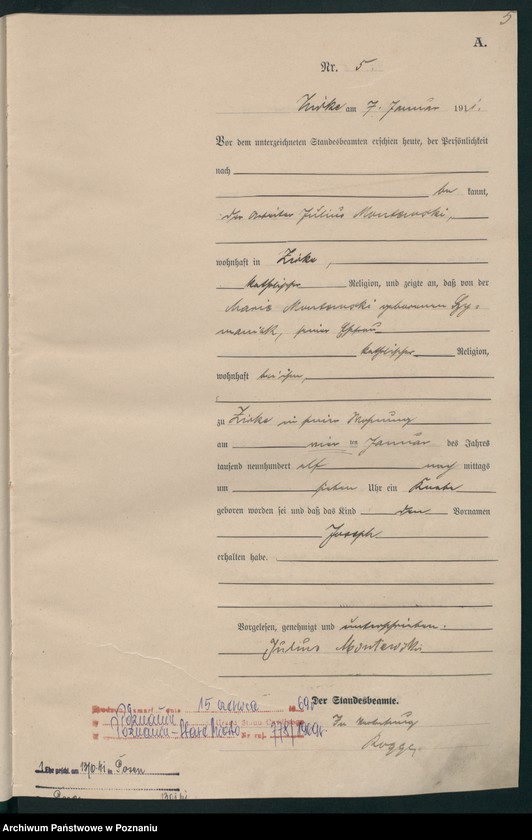 5
A.
Nr. 5.
Zirke am 7. Januar 1911.
Vor dem unterzeichneten Standesbeamten erschien heute, der Persönlichkeit
nach
be kannt,
der Arbeiter Julius Montewski,
wohnhaft in Zirke,
katholischer Religion, und zeigte an, daß von der
Maria Montewski geborenen
seiner Ehefrau
katholischer Religion,
wohnhaft bei ihm,
zu Zirke in seiner Wohnung
am vier ten Januar des Jahres
tausend neunhundert elf nach mittags
um sieben Uhr ein Knabe
geboren worden sei und daß das Kind den Vornamen
Joseph
erhalten habe.
Vorgelesen, genehmigt und unterschrieben.
Julius Montewski
Der Standesbeamte.
In Vertretung
zmarł dnia 15 czerwca 1969
w Poznaniu
Poznaniu-Stare Miasto Nr rej. 778/1969
1. Ehe geschl. am in Posen
Archiwum Państwowe w Poznaniu